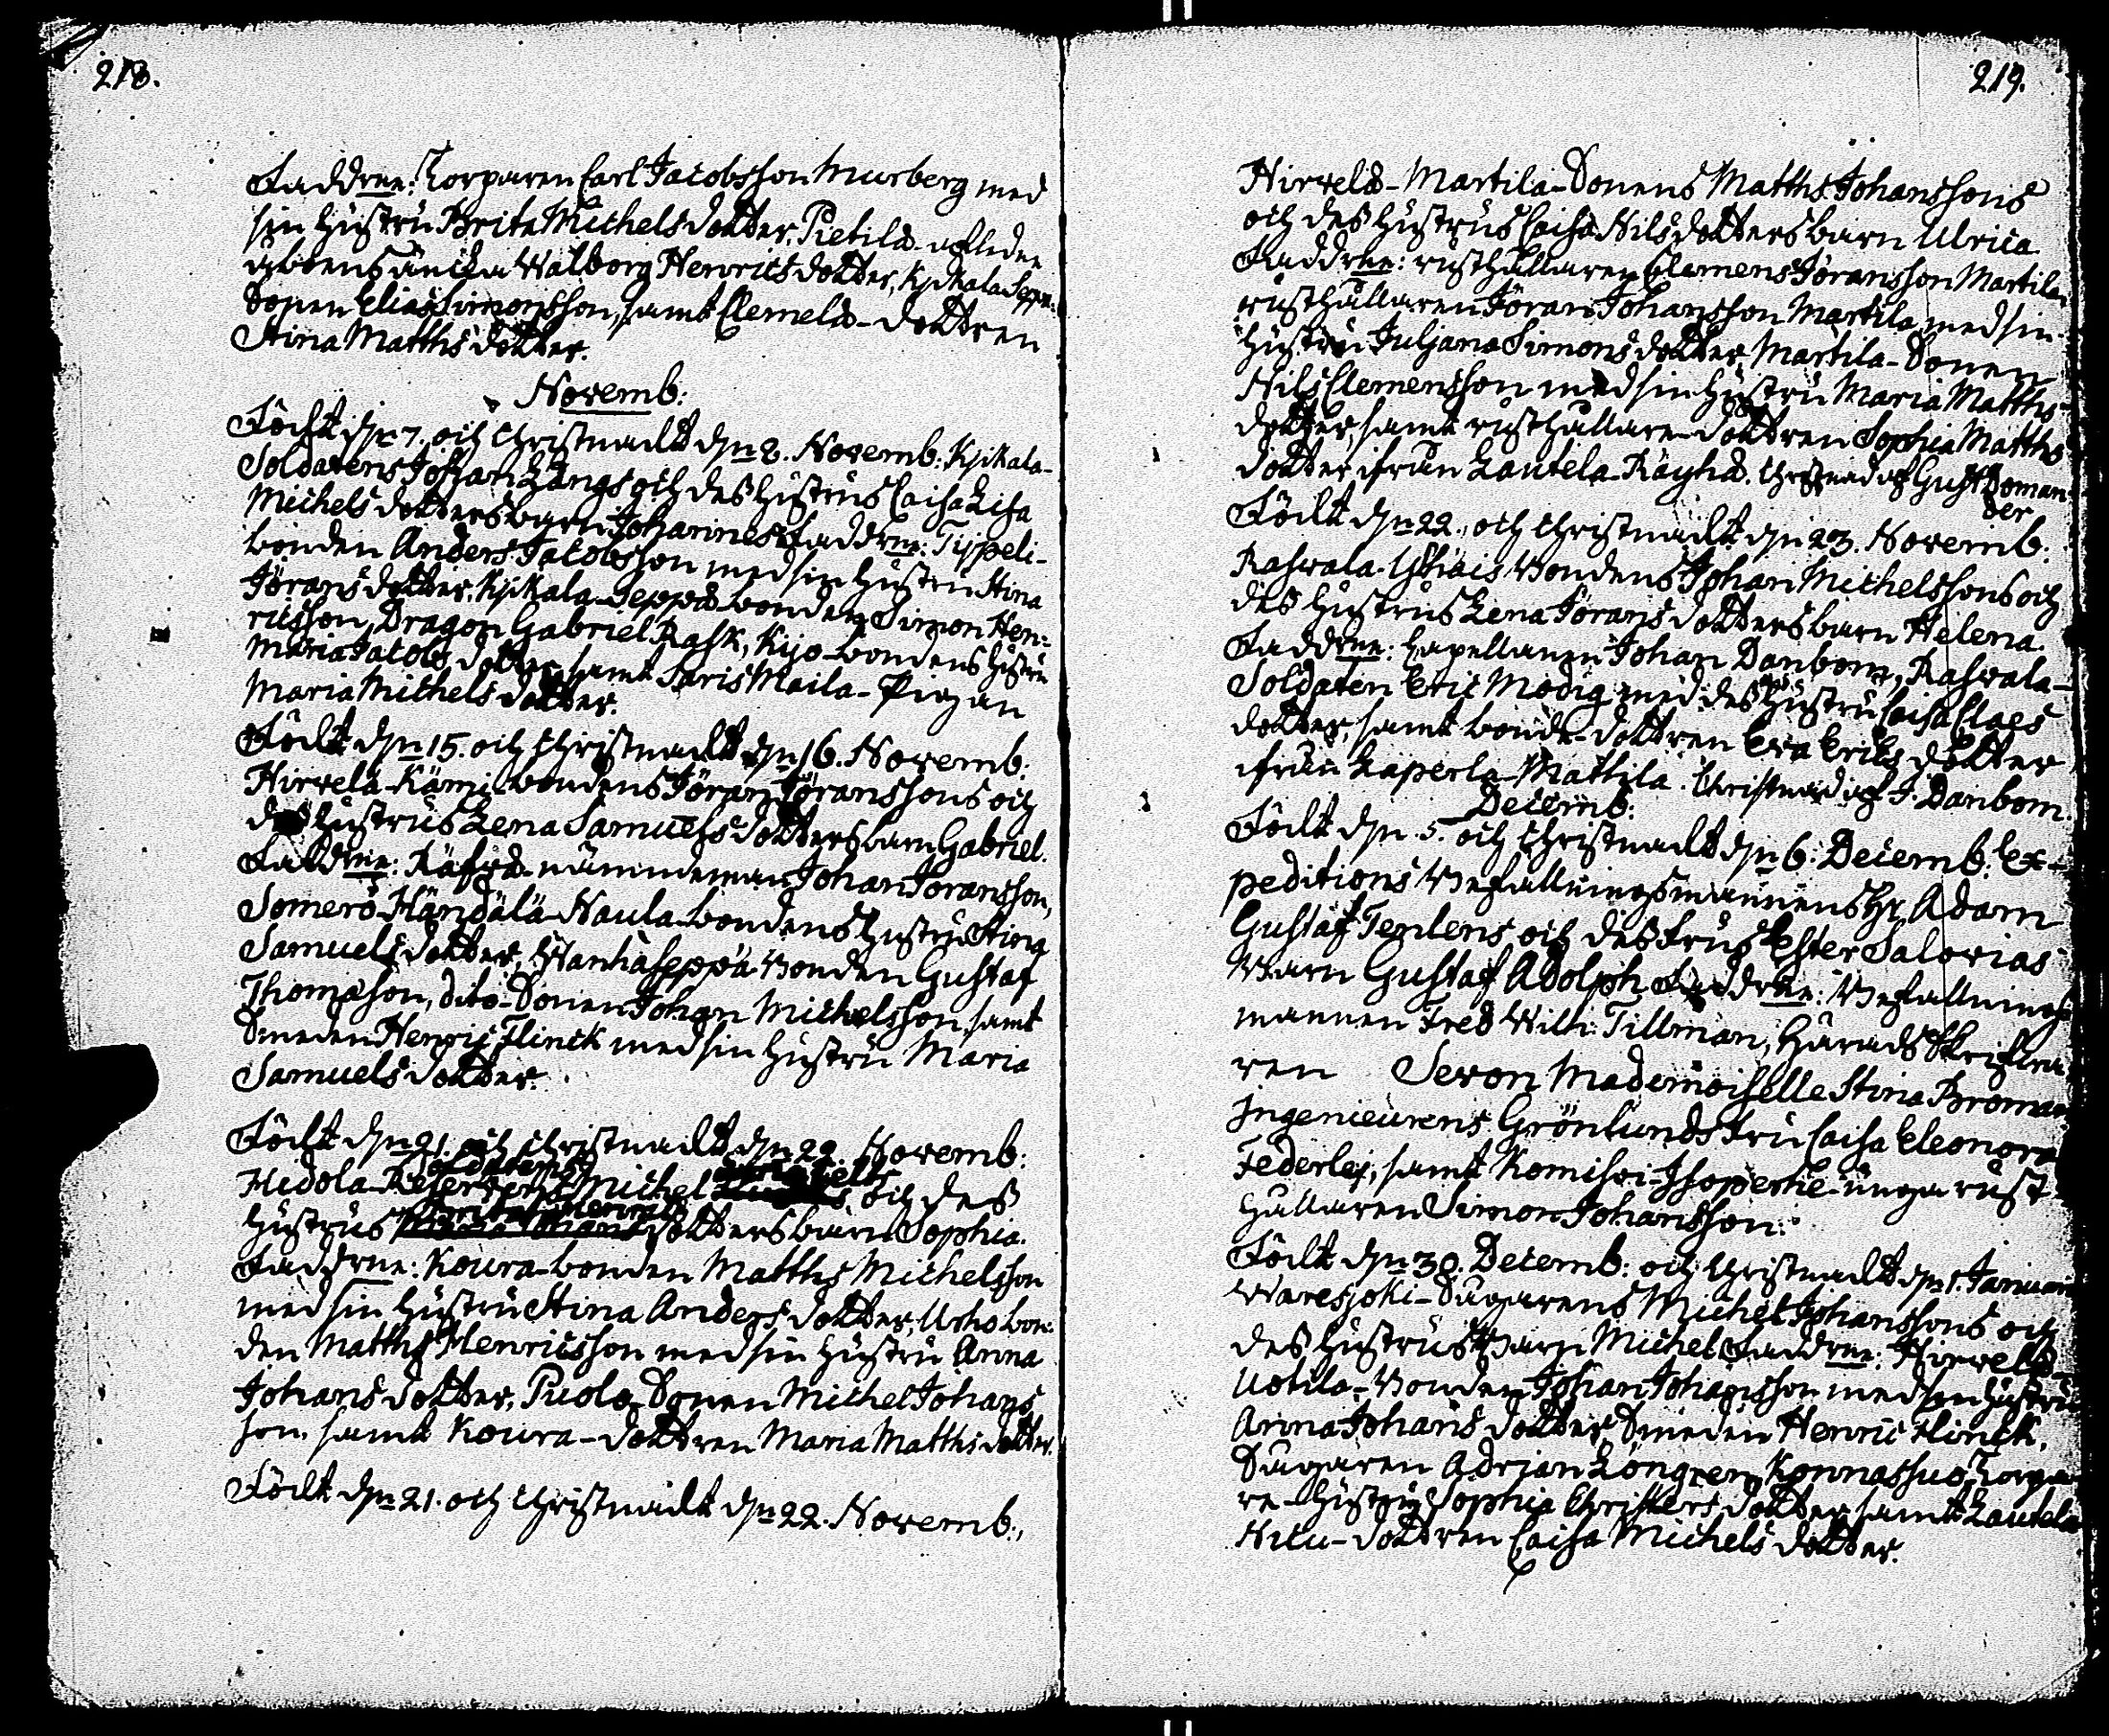 218.
Faddrne: Torparen Carl Jacobsson Murberg med
sin hustru Brita Michelsdotter, Pietilä-aflidne
åboens änka Walborg Henricsdotter, Kjikala Seppä-
Sonen Elias Simonsson, samt Clemelä-dottren
Stina Matthsdotter.
Novemb:
Född dn 7. och Christnadt dn 8. Novemb: Kjikala-
Soldatens Johan Långs och des hustrus Caisa Lisa
Michelsdotters barn Johannes. Faddrne: Typpeli-
bonden Anders Jacobsson med sin hustru Stina
Jöransdotter, Kjikala-Seppä-bonden Simon Hen-
ricsson, Dragon Gabriel Rask, Kijo-bondens hustru
Maria Jacobsdotter, samt Saris Maila-Pigan
Maria Michelsdotter.
Född dn 15. och Christnadt dn 16. Novemb:
Hirvelä-Kämi-bondens Jöran Jöranssons och
des hustrus Lena Samuelsdotters barn Gabriel.
Faddrne: nämndeman Johan Jöransson,
Somero-Händälä-Naula-bondens hustru Stina
Samuelsdotter, Wanhaseppä-bonden Gustaf
Thomasson, dito-Sonen Johan Michelsson, samt
Smeden Henric Flinck med sin hustru Maria
Samuelsdotter.
Född dn 21. och Christnadt dn 22. Novemb:
Soldatens
Hidola Michel och des
Brita Henrics
hustrus dotters barn Sophia.
Faddrne: Koura-bonden Matths Michelsson
med sin hustru Stina Andersdotter, Urhobon-
den Matths Henricsson med sin hustru Anna
Johansdotter, Puolo-Sonen Michel Johans
son, samt Koura-dottren Maria Matthsdotter.
Född dn 21. och Christnadt dn 22. Novemb:,
219.
Hirvelä-Martila-Sonens Matths Johanssons
och des hustrus Caisa Nilsdotters barn Ulrica.
Faddrne: rusthållaren Clemens Jöransson Martila,
rusthållaren Jöran Johansson Martila med sin
hustru Juljana Simonsdotter, Martila-Sonen
Nils Clemensson med sin hustru Maria Matths-
dotter, samt rusthållare-dottren Sophia Matths
dotter ifrån Lautela-Räyhä. Christnad af Gust Boman
der
Född dn 22. och Christnadt dn 23. Novemb:
Raswala-Ylhäis Bondens Johan Michelssons och
des hustrus Lena Jöransdotters barn Helena.
Faddrne: Capellanen Johan Danbom, Raswala-
Soldaten Eric Modig med des hustru Caisa Claes
dotter, samt bonde-dottren Eva Ericsdotter
ifrån Laperla-Mattila. Christnad af J. Danbom.
Decemb:
Född dn 5. och Christnadt dn 6. Decemb: Ex-
peditions Befallningsmannens Hr Adam
Gustaf Tenlens och des frus Ester Salovias
Barn Gustaf Adolph. Faddrne: Befallnings
mannen Fred Wilh: Tillman, Härads Skrifwa
ren Sevon Mademoiselle Stina Broman
Ingenieurens Grönlunds Fru Caisa Eleonora
Federley, samt Komisoi-Isoperhe-unga rust-
hållaren Simon Johansson.
Född dn 30. Decemb: och Christnadt dn 1. Januari
Waresjoki-Sågarens Michel Johanssons och
des hustrus Barn Michel. Faddrne: Hirvelä-
Uotila-Bonden Johan Johansson med sin hustru
Anna Johansdotter, Smeden Henric Flinck,
Sågaren Adrian Löngren, Konnassuo Torpa-
re-hustrun Sophia Christersdotter samt Lautela
Hilu-dottren Caisa Michelsdotter.